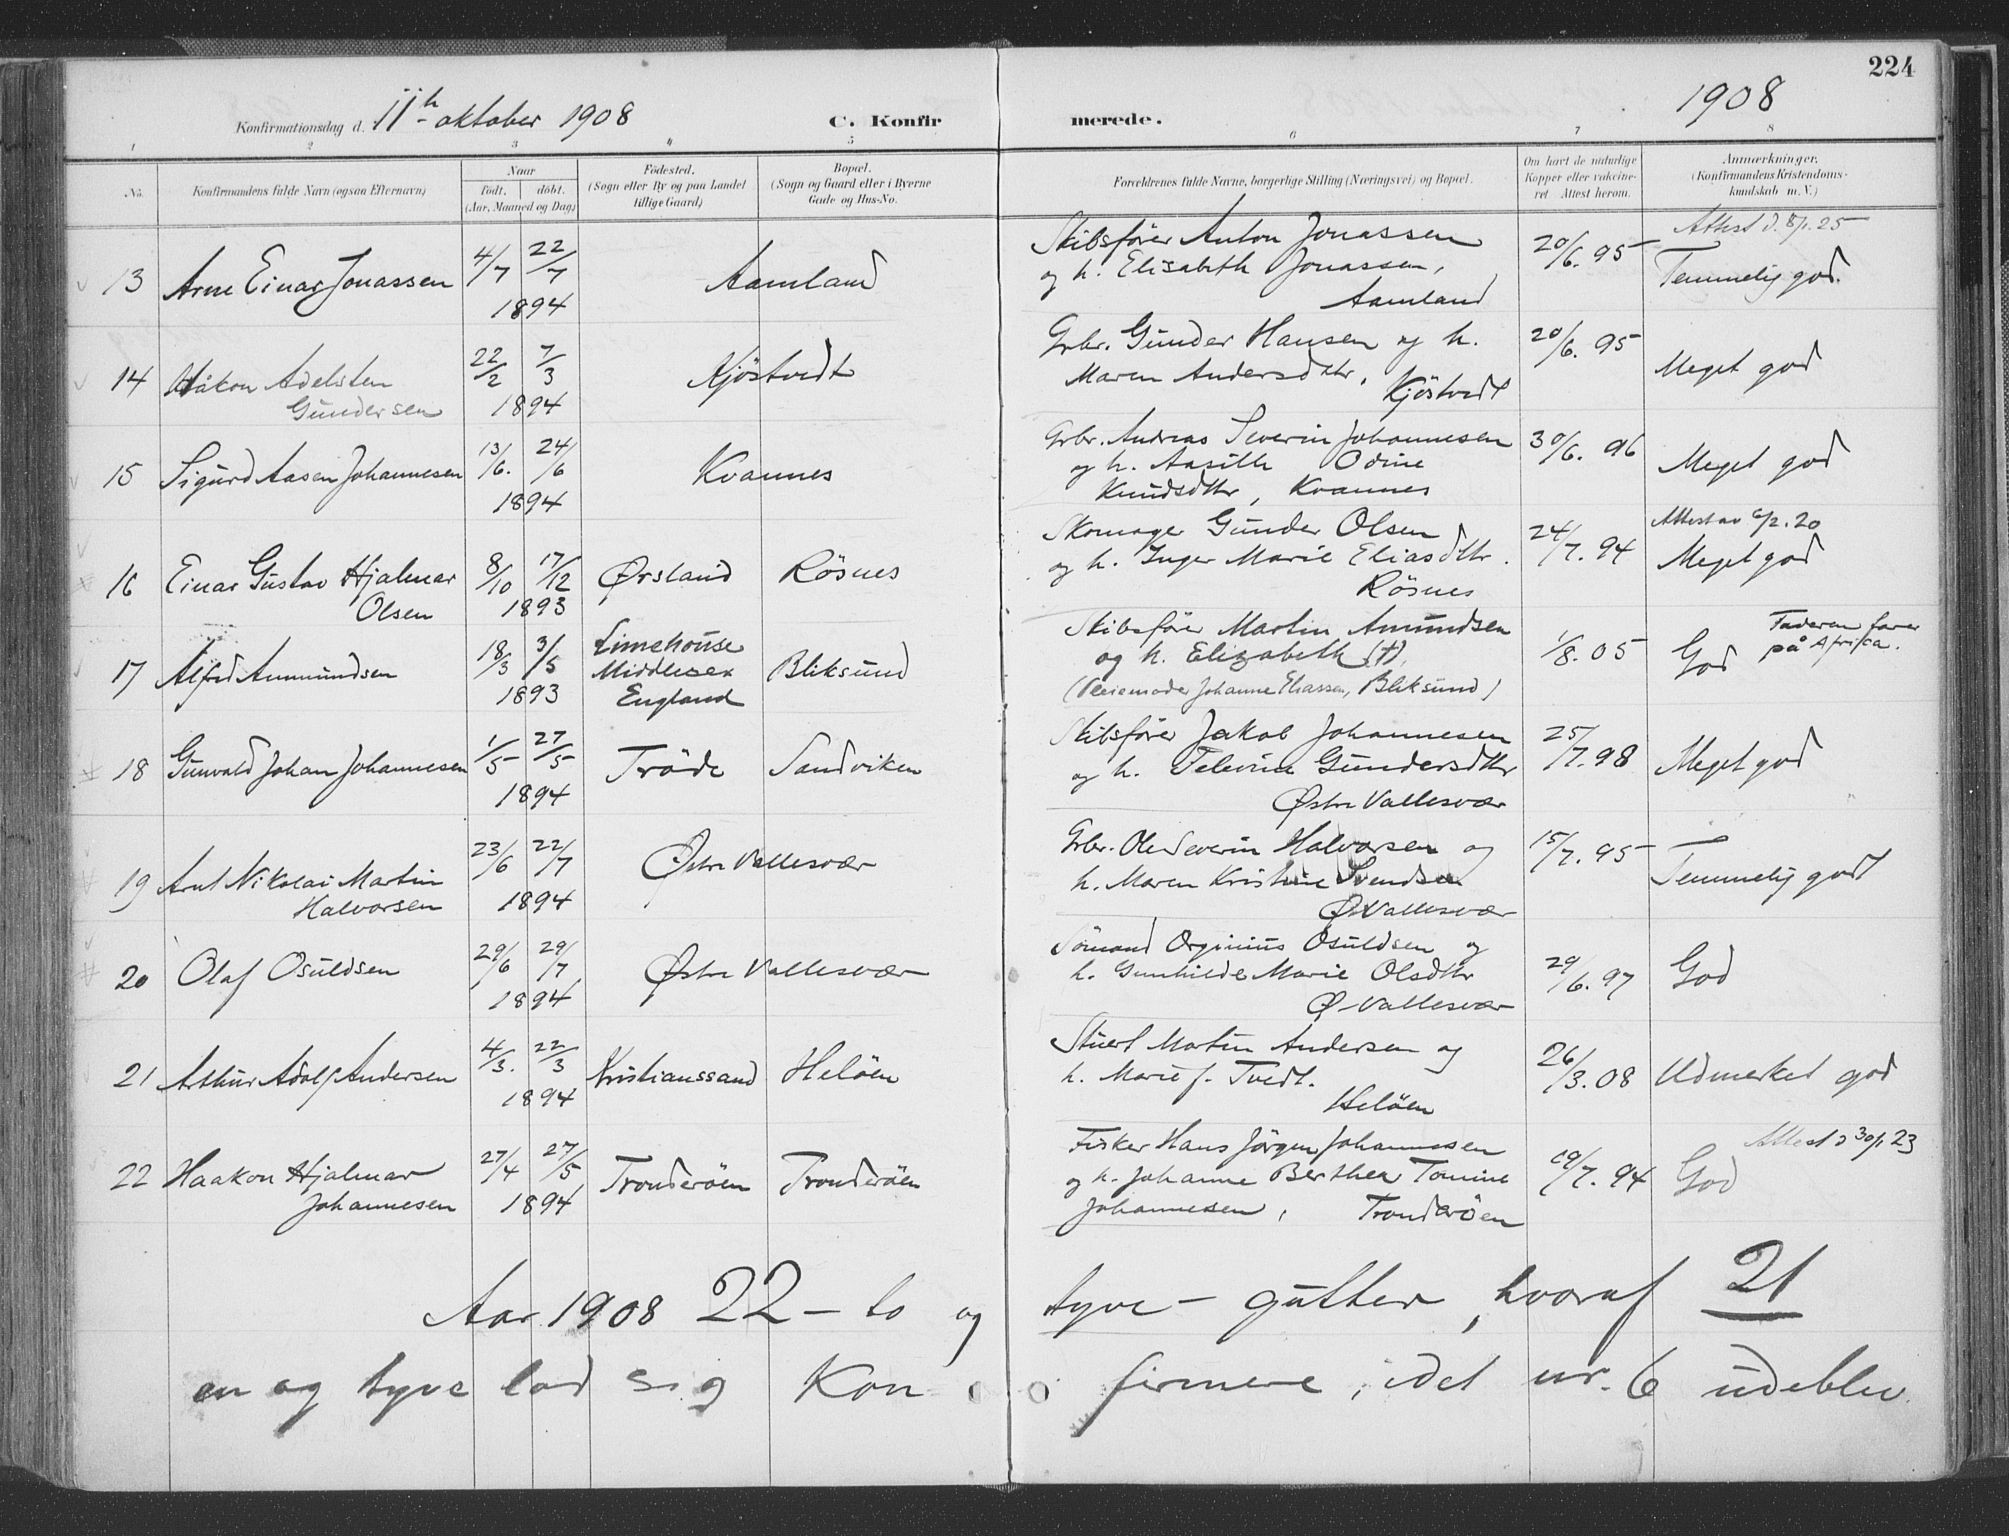 224
Konfirmationsdag d. 11h oktober 1908 C. Konfirmerede. 1908
1 2 3 4 5 6 7 8
No. Konfirmandens fulde Navn (ogsaa Efternavn) Naar født. døbt. (Aar, Maaned og Dag.)
Fødested. (Sogn eller By og paa Landet tillige Gaard)
Bopæl. (Sogn og Gaard eller i Byerne Gade og Hus-No.
Forældrenes fulde Navne, borgerlige Stilling (Næringsvei) og Bopæl.
Om havt de naturlige Kopper eller vakcineret. Attest herom.
Anmærkninger. (Konfirmandens Kristendomskundskab m. V.)
13 Arne Einar Jonassen 4/7 22/7 1894 Aamland
Skibsfører Anton Jonassen
og h. Elisabeth Jonassen,
Aamland
20/6. 95
Attest d. 8/1. 25
Temmelig god.
14 Håkon Adelsten
Gundersen
22/2 7/3 1894 Kjöstvedt
Grbr. Gunder Hansen og h.
Maren Andersdttr,
Kjöstvedt
20/6. 95 Meget god
15 Sigurd Aasen Johannesen 13/6. 24/6 1894 Kvannes
Grbr. Andreas Severin Johannesen
og h. Aasille Odine
Knudsdttr, Kvannes
30/6. 96 Meget god
16 Einar Gustav Hjalmar
Olsen
8/10 17/12 1893 Ørsland Rösnes
Skomager Gunder Olsen
og h. Inger Marie Eliasdttr.
Rösnes
24/7. 94
Attest av 6/2. 20
Meget god
17 Alfred Ammundsen 18/3 3/5 1893
Limehouse
Middlesex
England
Bliksund
Skibsfører Martin Amundsen
og h. Elizabeth (†),
(Pleiemoder Johanne Eliassen, Bliksund)
1/8. 05 God
Faderen farer
på Afrika.
18 Gunvald Johan Johannesen 1/5 27/5 1894 Tröde Sandviken
Skibsfører Jakob Johannesen
og h. Televine Gundersdttr
Østre Vallesvær
25/7. 98 Meget god
19 Arnt Nikolai Martin
Halvorsen
23/6 22/7 1894 Østre Vallesvær
Grbr. Ole Severin Halvorsen og
h. Maren Kristine Svendsen
Ø Vallesvær
15/7. 95 Temmelig godt
20 Olaf Osuldsen 29/6 29/7 1894 Østre Vallesvær
Sömand Orginius Osuldsen og
h. Gunhilde Marie Olsdttr
Ø-Vallesvær
29/6. 97 God
21 Arthur Adolf Andersen 4/3. 22/3 1894 Kristianssand Helöen
Stuert Martin Andersen og
h. Marie f. Tvedt.
Helöen
26/3. 08 Udmerket god
22 Haakon Hjalmar
Johannesen
27/4 27/5 1894 Tronderöen Tronderöen
Fisker Hans Jörgen Johannesen
og h. Johanne Berthea Tomine
Johannesen, Tronderöen
19/7. 94
Attest d 30/1 23
God
Aar 1908 22 – to og tyve – gutter, hvoraf 21
en og tyve lod sig Konfirmere, idet nr. 6 udeblev.